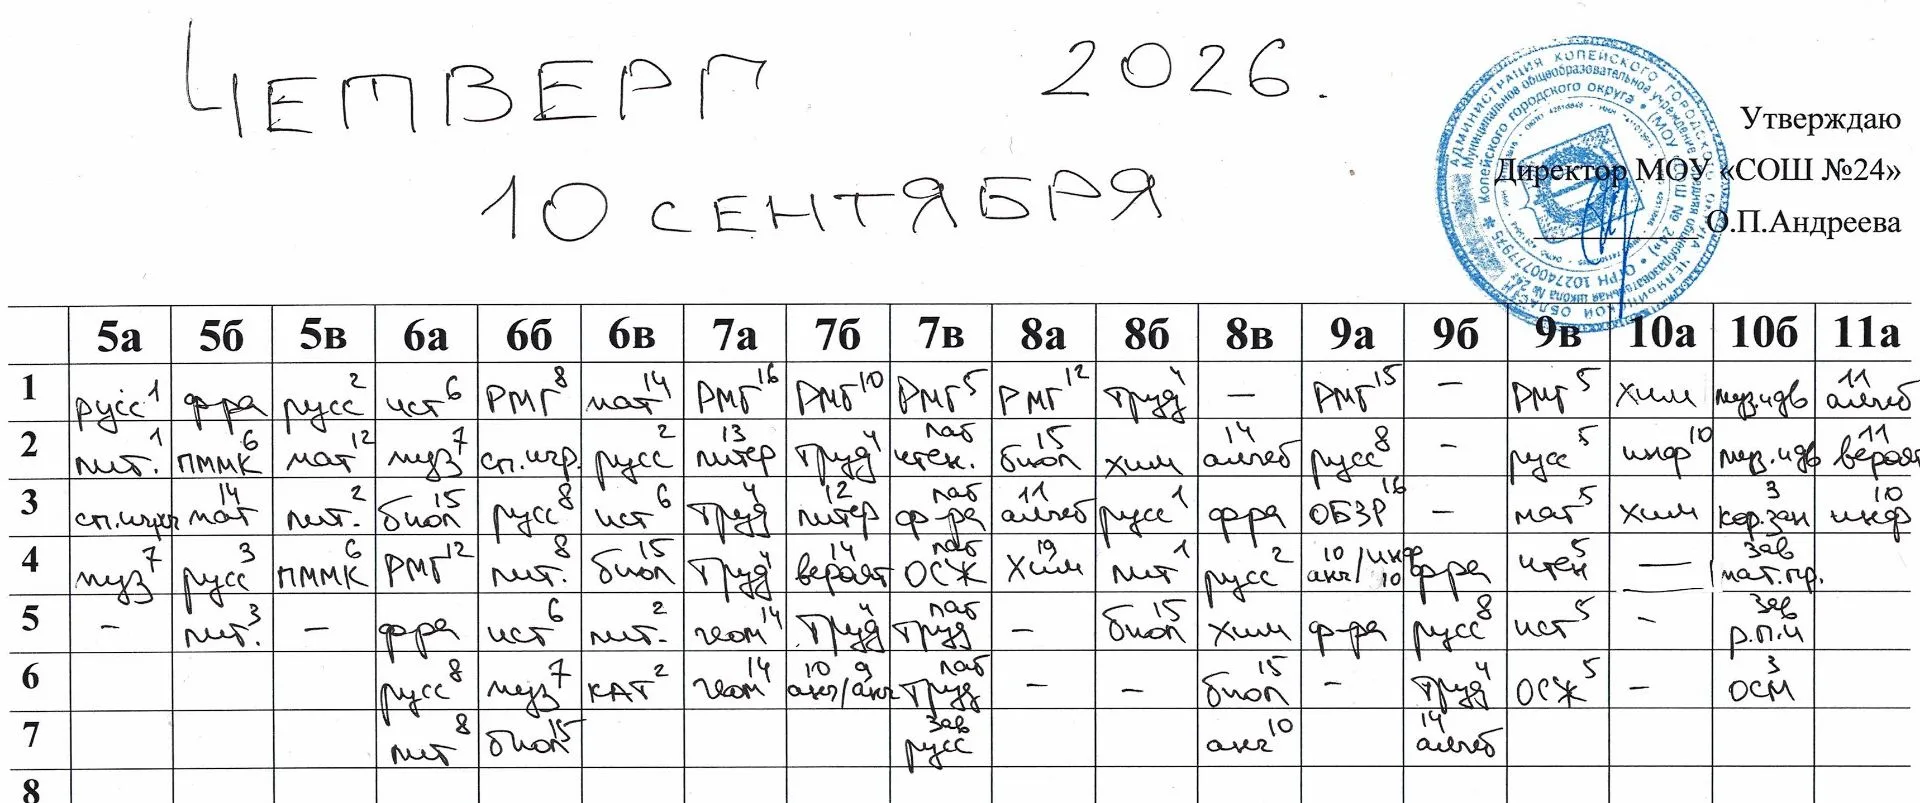 ЧЕТВЕРГ 2026.
10 СЕНТЯБРЯ
Утверждаю
Директор МОУ «СОШ №24»
О.П.Андреева
5а 5б 5в 6а 6б 6в 7а 7б 7в 8а 8б 8в 9а 9б 9в 10а 10б 11а
1 русс 1 ф-ра русс 2 ист 6 РМГ 8 мат 14 РМГ 16 РМГ 10 РМГ 5 РМГ 12 Труд 4 – РМГ 15 – РМГ 5 хим муз.идв 11 алгеб
2 лит. 1 ПММК 6 мат 12 муз 7 сп.игр. русс 2 13 литер Труд 4 лаб чтен. 15 биол хим 14 алгеб русс 8 – русс 5 инф 10 муз.идв 11 вероят
3 сп.игры 14 мат лит. 2 биол 15 русс 8 ист 6 Труд 4 12 литер лаб ф-ра 11 алгеб русс 1 ф-ра ОБЗР 16 – мат 5 хим 3 кор.зан 10 инф
4 муз 7 русс 3 ПММК 6 РМГ 12 лит. 8 биол 15 Труд 4 14 вероят лаб ОСЖ 19 хим лит 1 русс 2 10 анг/инф 10 ф-ра чтен 5 — зав мат.пр.
5 – лит. 3 – ф-ра ист 6 лит. 2 геом 14 Труд 4 лаб Труд – биол 15 хим ф-ра русс 8 ист 5 - зав р.п.и
6 русс 8 муз 7 КАТ 2 геом 14 10 анг/анг 9 лаб Труд - - 15 биол - Труд 4 ОСЖ 5 - 3 ОСМ
7 лит 8 биол 15 зав русс анг 10 14 алгеб
8